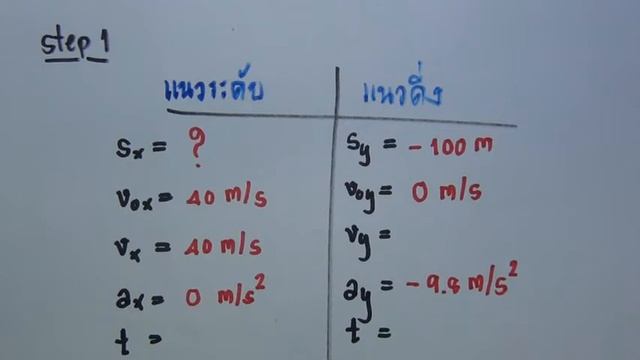 step 1
แนวระดับ
แนวดิ่ง
sₓ = ?
s_y = - 100 m
v₀ₓ = 40 m/s
v₀y = 0 m/s
vₓ = 40 m/s
v_y =
aₓ = 0 m/s²
a_y = - 9.8 m/s²
t =
t =